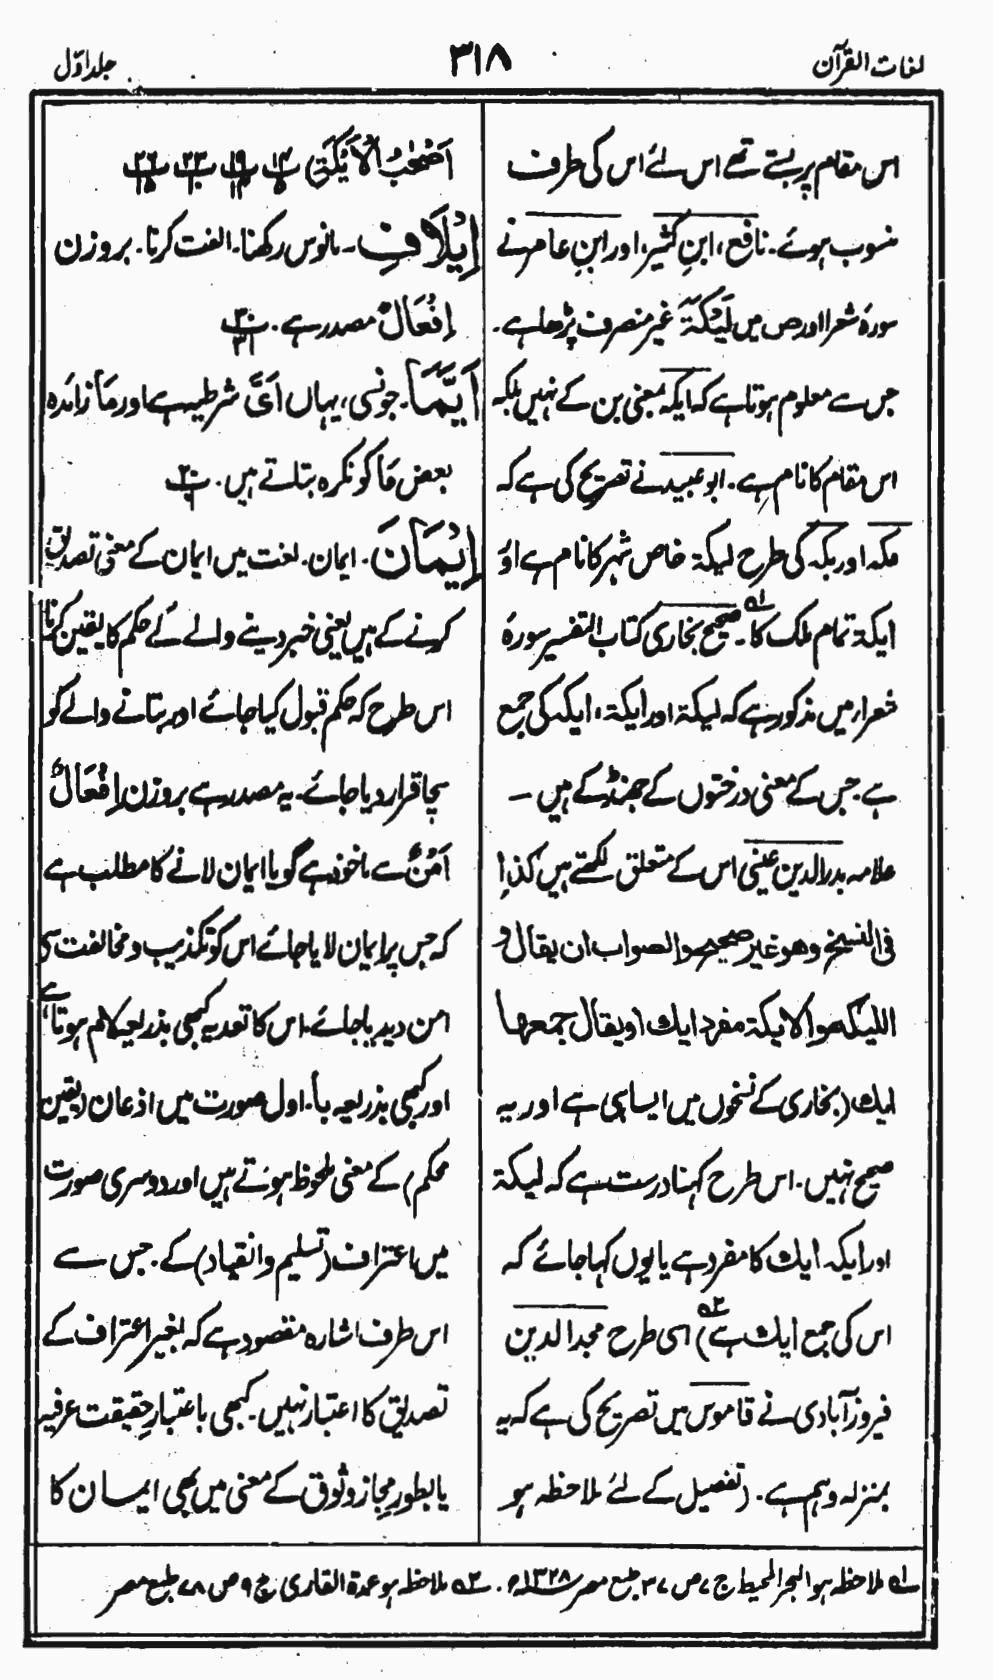 لغات القرآن
۳۱۸
جلد اوّل
اس مقام پر بستے تھے اس لئے اس کی طرف
منسوب ہوئے۔ نافع، ابنِ کثیر، اور ابنِ عامر نے
سورۂ شعرا اور ص میں لَیْکَۃَ غیر منصرف پڑھا ہے۔
جس سے معلوم ہوتا ہے کہ ایکہ بمعنی بن کے نہیں بلکہ
اس مقام کا نام ہے۔ ابو عبید نے تصریح کی ہے کہ
مکہ اور بکہ کی طرح لیکۃ خاص شہر کا نام ہے اور
ایکۃ تمام ملک کا۔ ۱؎ صحیح بخاری کتاب التفسیر سورۂ
شعراء میں مذکور ہے کہ لیکۃ اور ایکۃ، ایک کی جمع
ہے۔ جس کے معنی درختوں کے جھنڈ کے ہیں ۔
علامہ بدر الدین عینی اس کے متعلق لکھتے ہیں کذا
فی النسخ وھو غیر صحیح والصواب ان یقال و
اللیکۃ والایکۃ مفرد ایك او یقال جمعھا
ایك (بخاری کے نسخوں میں ایسا ہی ہے اور یہ
صحیح نہیں۔ اس طرح کہنا درست ہے کہ لیکۃ
اور ایکہ ایك کا مفرد ہے یا یوں کہا جائے کہ
اس کی جمع ایك ہے) ۲؎ اسی طرح مجد الدین
فیروز آبادی نے قاموس میں تصریح کی ہے کہ یہ
بمنزلہ وہم ہے۔ (تفصیل کے لئے ملاحظہ ہو
اَصْحٰبُ الْاَیْکَۃِ
اِیْلَافِ۔ مانوس رکھنا۔ الفت کرنا۔ بروزن
اِفْعَالٌ مصدر ہے۔
اَیَّمَا۔ جونسی، یہاں اَیَّ شرطیہ ہے اور مَا زائدہ
بعض مَا کو نکرہ بتلاتے ہیں۔
اِیْمَانَ۔ ایمان۔ لغت میں ایمان کے معنی تصدیق
کرنے کے ہیں یعنی خبر دینے والے کے حکم کا یقین کرنا
اس طرح کہ حکم قبول کیا جائے اور بتانے والے کو
سچا قرار دیا جائے۔ یہ مصدر ہے بروزن اِفْعَالٌ
اَمْنٌ سے ماخوذ ہے گویا ایمان لانے کا مطلب ہے
کہ جس پر ایمان لایا جائے اس کو تکذیب و مخالفت سے
امن دیدیا جائے۔ اس کا تعدیہ کبھی بذریعہ لام ہوتا ہے
اور کبھی بذریعہ با۔ اول صورت میں اذعان (یقین
محکم) کے معنی ملحوظ ہوتے ہیں اور دوسری صورت
میں اعتراف (تسلیم و انقیاد) کے۔ جس سے
اس طرف اشارہ مقصود ہے کہ بغیر اعتراف کے
تصدیق کا اعتبار نہیں۔ کبھی باعتبار حقیقت عرفیہ
یا بطور مجاز وثوق کے معنی میں بھی ایمان کا
۱؎ ملاحظہ ہو البحر المحیط ج ۷ ص ۳۷ طبع مصر ۱۳۲۸ھ۔ ۲؎ ملاحظہ ہو عمدۃ القاری ج ۹ ص ۷۸ طبع مصر